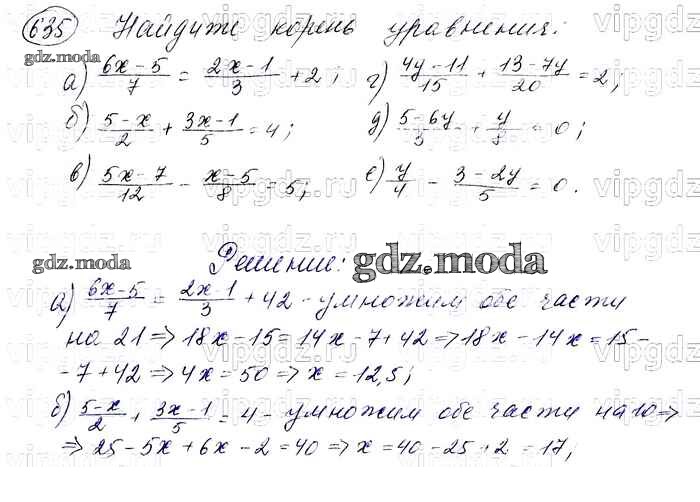 635 Найдите корень уравнения:
gdz.moda
а) (6x-5)/7 = (2x-1)/3 + 2; г) (4y-11)/15 + (13-7y)/20 = 2;
б) (5-x)/2 + (3x-1)/5 = 4; д) (5-6y)/3 + y/8 = 0;
в) (5x-7)/12 - (x-5)/8 = 5; е) y/4 - (3-2y)/5 = 0.
gdz.moda Решение: gdz.moda
а) (6x-5)/7 = (2x-1)/3 + 42 - умножим обе части
на 21 ⇒ 18x - 15 = 14x - 7 + 42 ⇒ 18x - 14x = 15 -
- 7 + 42 ⇒ 4x = 50 ⇒ x = 12,5;
б) (5-x)/2 + (3x-1)/5 = 4 - умножим обе части на 10 ⇒
⇒ 25 - 5x + 6x - 2 = 40 ⇒ x = 40 - 25 + 2 = 17;
vipgdz.ru